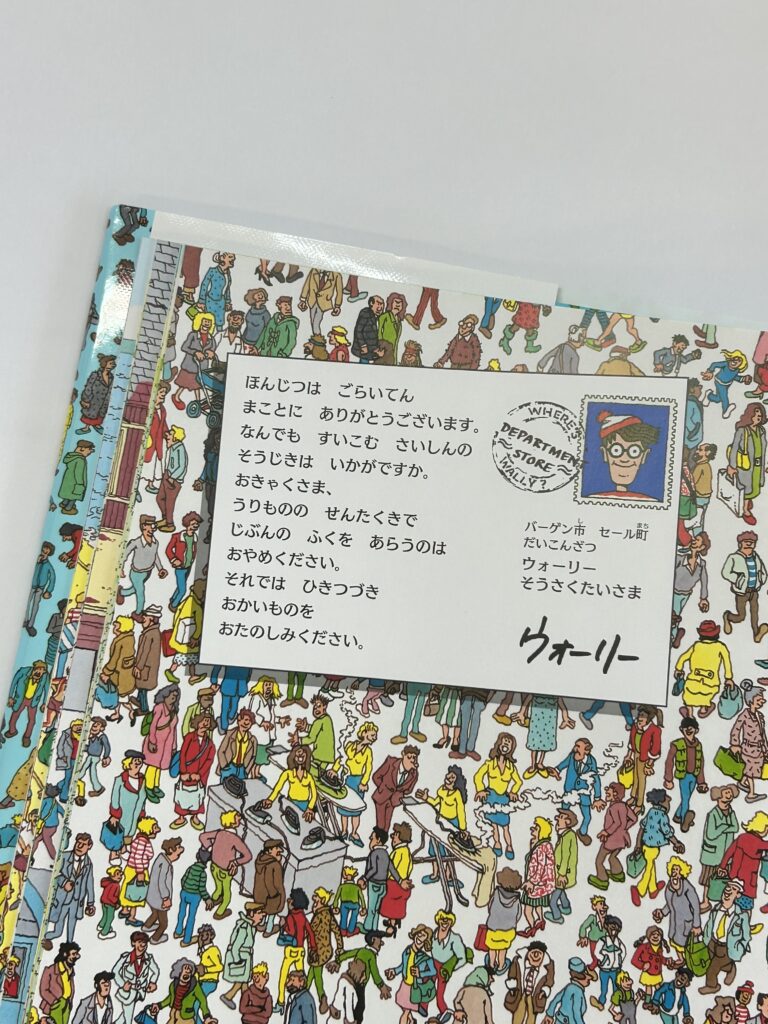 ほんじつは　ごらいてん
まことに　ありがとうございます。
なんでも　すいこむ　さいしんの
そうじきは　いかがですか。
おきゃくさま、
うりものの　せんたくきで
じぶんの　ふくを　あらうのは
おやめください。
それでは　ひきつづき
おかいものを
おたのしみください。
WHERE'S
DEPARTMENT
STORE
WALLY?
バーゲン市　セール町
だいこんざつ
ウォーリー
そうさくたいさま
ウォーリー